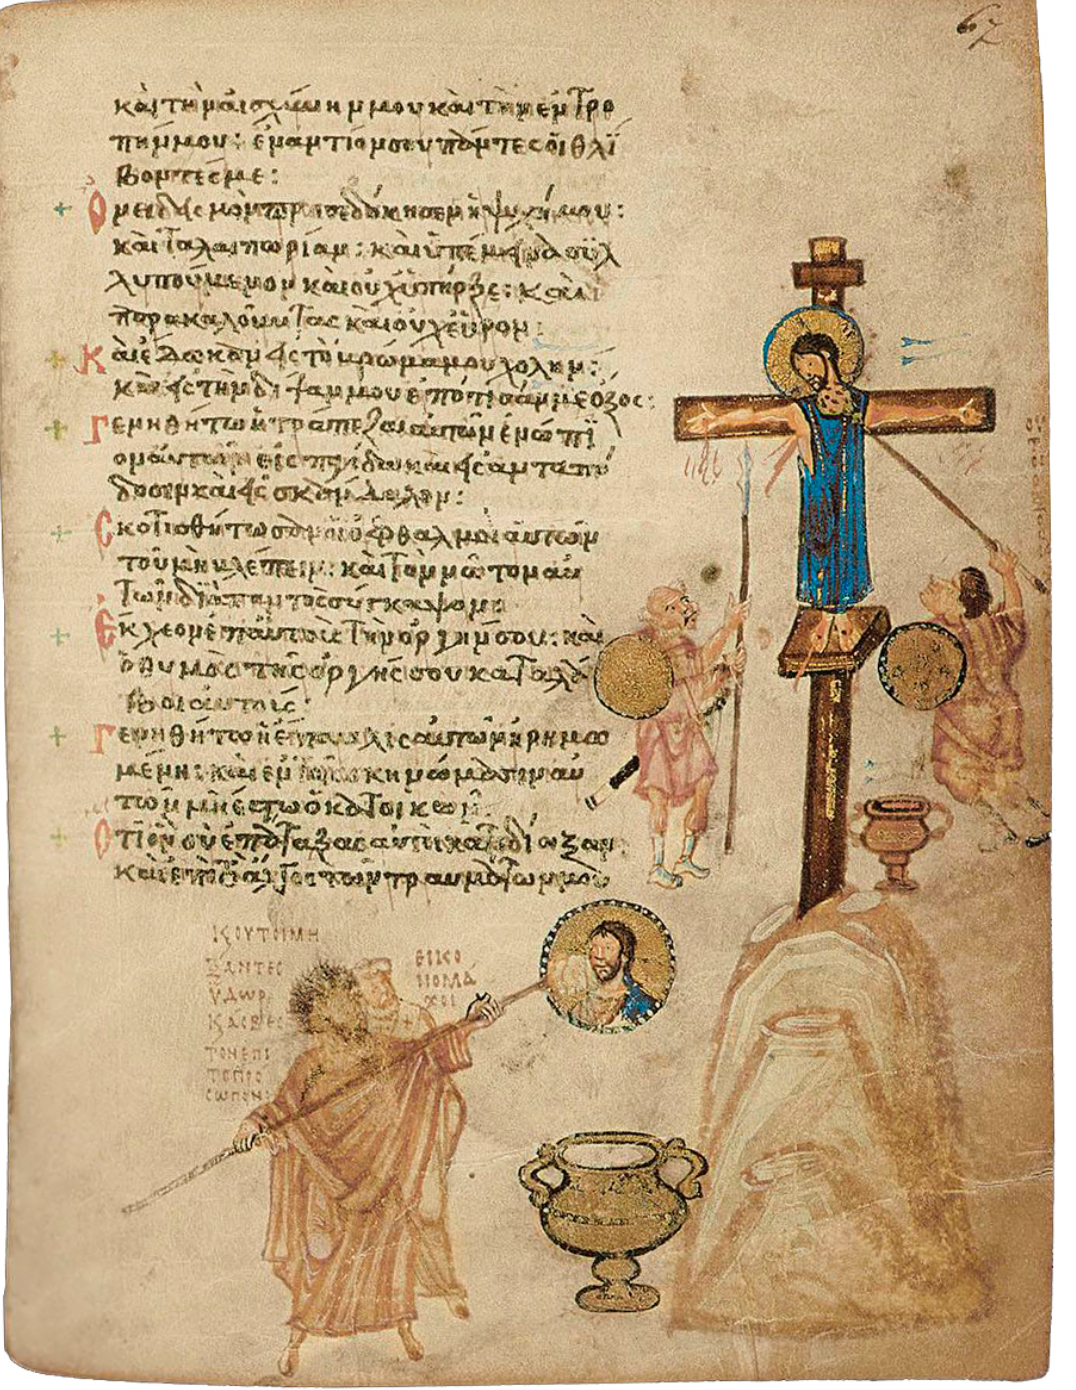 67
καὶ τὴν αἰσχύνην μου καὶ τὴν ἐντρο
πήν μου: ἐναντίον σου πάντες οἱ θλί
βοντές με:
Ὀνειδισμὸν προσεδόκησεν ἡ ψυχή μου:
καὶ ταλαιπωρίαν: καὶ ὑπέμεινα συλ
λυπούμενον καὶ οὐχ ὑπῆρξε: καὶ
παρακαλοῦντας καὶ οὐχ εὗρον:
Καὶ ἔδωκαν εἰς τὸ βρῶμα μου χολὴν:
καὶ εἰς τὴν δίψαν μου ἐπότισάν με ὄξος:
Γενηθήτω ἡ τράπεζα αὐτῶν ἐνώπι
ον αὐτῶν εἰς παγίδα καὶ εἰς ἀνταπό
δοσιν καὶ εἰς σκάνδαλον:
Σκοτισθήτωσαν οἱ ὀφθαλμοὶ αὐτῶν
τοῦ μὴ βλέπειν: καὶ τὸν νῶτον αὐ
τῶν διὰ παντὸς σύγκαμψον
Ἔκχεον ἐπ' αὐτοὺς τὴν ὀργήν σου: καὶ
ὁ θυμὸς τῆς ὀργῆς σου καταλά
βοι αὐτούς:
Γενηθήτω ἡ ἔπαυλις αὐτῶν ἠρημω
μένη: καὶ ἐν τοῖς σκηνώμασιν αὐ
τῶν μὴ ἔστω ὁ κατοικῶν:
Ὅτι ὃν σὺ ἐπάταξας αὐτοὶ κατεδίωξαν
καὶ ἐπὶ τὸ ἄλγος τῶν τραυμάτων μου
Κ ΟΥΤΟΙ ΜΗ
ΞΑΝΤΕС
ΥΔΩΡ
Κ ΑСΒΕС
ΤΟΝ ΕΠΙ
ΤΟ ΠΡΟ
СΩΠΟΝ
ΕΙΚΟ
ΝΟΜΑ
ΧΟΙ